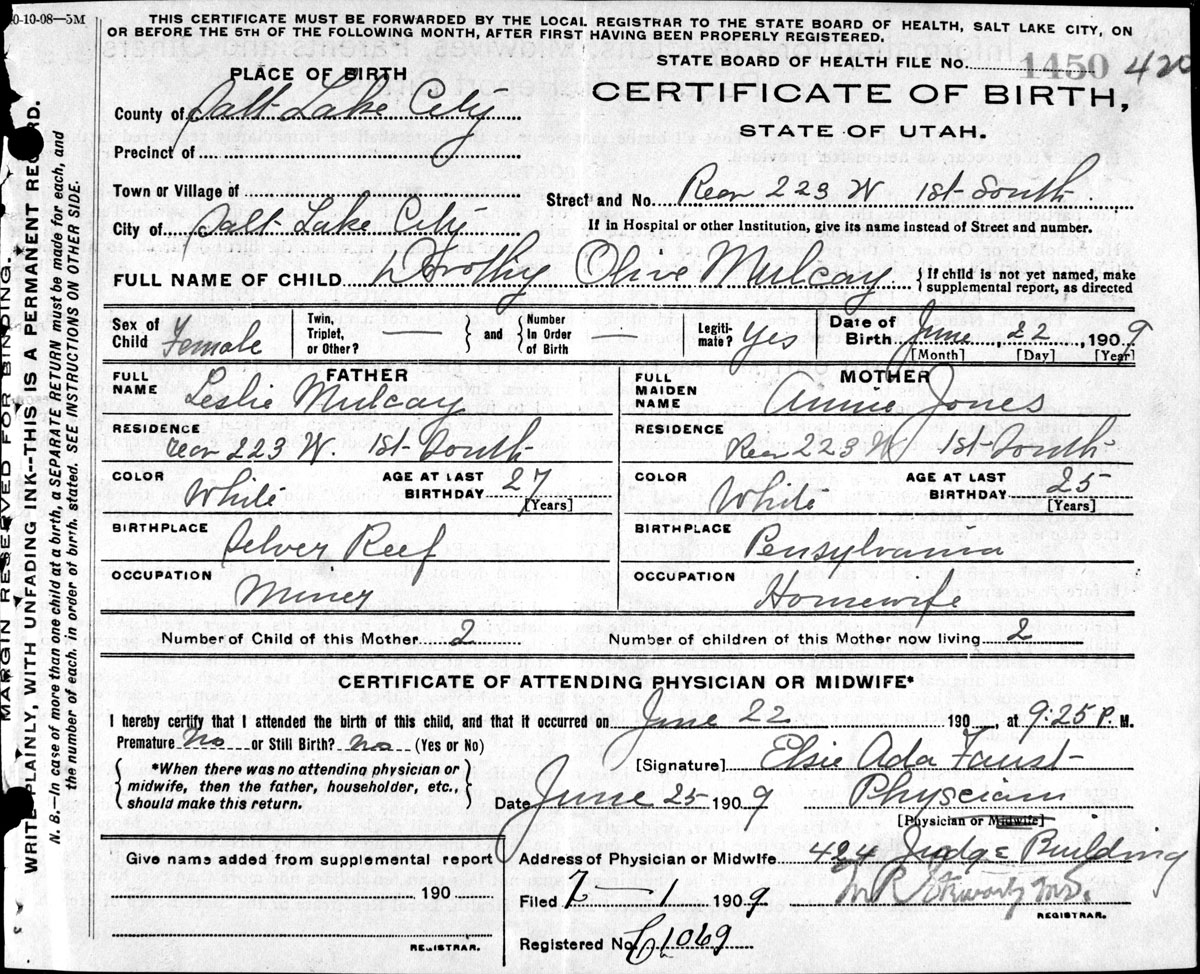 0-10-08—5M
THIS CERTIFICATE MUST BE FORWARDED BY THE LOCAL REGISTRAR TO THE STATE BOARD OF HEALTH, SALT LAKE CITY, ON
OR BEFORE THE 5TH OF THE FOLLOWING MONTH, AFTER FIRST HAVING BEEN PROPERLY REGISTERED.
STATE BOARD OF HEALTH FILE No. 1450 420
PLACE OF BIRTH
CERTIFICATE OF BIRTH,
STATE OF UTAH.
County of Salt Lake City
Precinct of
Town or Village of
Street and No. Rear 223 W 1st South
City of Salt Lake City
If in Hospital or other Institution, give its name instead of Street and number.
FULL NAME OF CHILD Dorothy Olive Mulcay { If child is not yet named, make supplemental report, as directed
Sex of Child Female Twin, Triplet, or Other? — } and { Number In Order of Birth — Legiti- mate? Yes Date of Birth June 22, 1909
[Month] [Day] [Year]
FATHER
FULL NAME Leslie Mulcay
RESIDENCE rear 223 W. 1st South
COLOR White AGE AT LAST BIRTHDAY 27 [Years]
BIRTHPLACE Selver Reef
OCCUPATION Miner
MOTHER
FULL MAIDEN NAME Annie Jones
RESIDENCE Rear 223 W 1st South
COLOR White AGE AT LAST BIRTHDAY 25 [Years]
BIRTHPLACE Pensylvania
OCCUPATION Homewife
Number of Child of this Mother 2 Number of children of this Mother now living 2
CERTIFICATE OF ATTENDING PHYSICIAN OR MIDWIFE*
I hereby certify that I attended the birth of this child, and that it occurred on June 22 190 , at 9:25 P. M.
Premature No or Still Birth? No (Yes or No)
[Signature] Elsie Ada Faust
{ *When there was no attending physician or
midwife, then the father, householder, etc.,
should make this return. }
Date June 25 1909 Physcian
[Physician or Midwife]
Give name added from supplemental report
Address of Physician or Midwife 424 Judge Building
190
Filed 7—1 1909 M.D.
REGISTRAR.
REGISTRAR.
Registered No. 1069
MARGIN RESERVED FOR BINDING.
WRITE PLAINLY, WITH UNFADING INK--THIS IS A PERMANENT RECORD.
N. B.—In case of more than one child at a birth, a SEPARATE RETURN must be made for each, and
the number of each, in order of birth, stated. SEE INSTRUCTIONS ON OTHER SIDE.